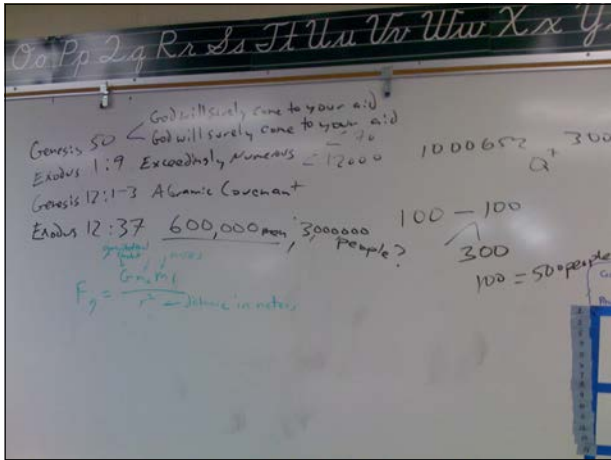 Oo Pp Qq Rr Ss Tt Uu Vv Ww Xx Y
Genesis 50 < God will surely come to your aid
God will surely come to your aid
Exodus 1:9 Exceedingly Numerous < 70
12000
Genesis 12:1-3 Abramic Covenant
Exodus 12:37 600,000 men, 3,000000
people?
1000652 + 300
Q
100 - 100
300
100 = 500 people
Fg = G m₁ m₁
r² ← distance in meters